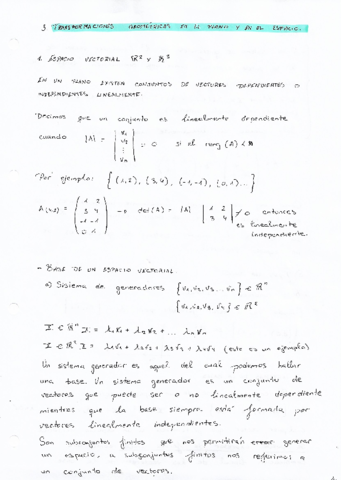 3 TRANSFORMACIONES GEOMÉTRICAS EN EL PLANO Y EN EL ESPACIO.
1. ESPACIO VECTORIAL ℝ² Y ℝ³
EN UN PLANO EXISTEN CONJUNTOS DE VECTORES DEPENDIENTES O
INDEPENDIENTES LINEALMENTE.
"Decimos que un conjunto es linealmente dependiente
cuando |A| = | v₁ v₂ ⋮ vₙ | = 0 si el rang (A) < n
"Por ejemplo: { (1,2), (3,4), (-1,-1), (0,1) ... }
A = ( 1 2 3 4 -1 -1 0 1 ) → det(A) = |A| | 1 2 3 4 | ≠ 0 entonces
es linealmente
independiente.
- BASE DE UN ESPACIO VECTORIAL
a) Sistema de generadores {v₁, v₂, v₃ ... vₙ} ∈ ℝⁿ
{v₁, v₂, v₃, vₙ} ∈ ℝ²
X ∈ ℝⁿ X = λ₁v₁ + λ₂v₂ + ... λₙvₙ
(esto es un ejemplo)
Un sistema generador es aquel del cual podemos hallar
una base. Un sistema generador es un conjunto de
vectores que puede ser o no linealmente dependiente
mientras que la base siempre está formada por
vectores linealmente independientes.
Son subconjuntos finitos que nos permitirán generar
un espacio, a subconjuntos finitos nos referimos a
un conjunto de vectores.